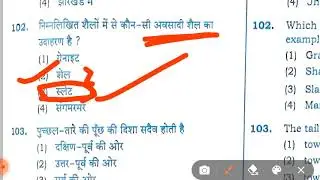 (4) झारखंड में
102. निम्नलिखित शैलों में से कौन-सी अवसादी शैल का
उदाहरण है ?
(1) ग्रेनाइट
(2) शेल
स्लेट
(4) संगमरमर
103. पुच्छल-तारे की पूँछ की दिशा सदैव होती है
(1) दक्षिण-पूर्व की ओर
(2) उत्तर-पूर्व की ओर
(3) पूर्व की ओर
(4) JH
102. Which
exampl
(1) Gra
(2) Sha
(3) Sl
(4) Ma
103. The tail
(1) tow
(2) tow